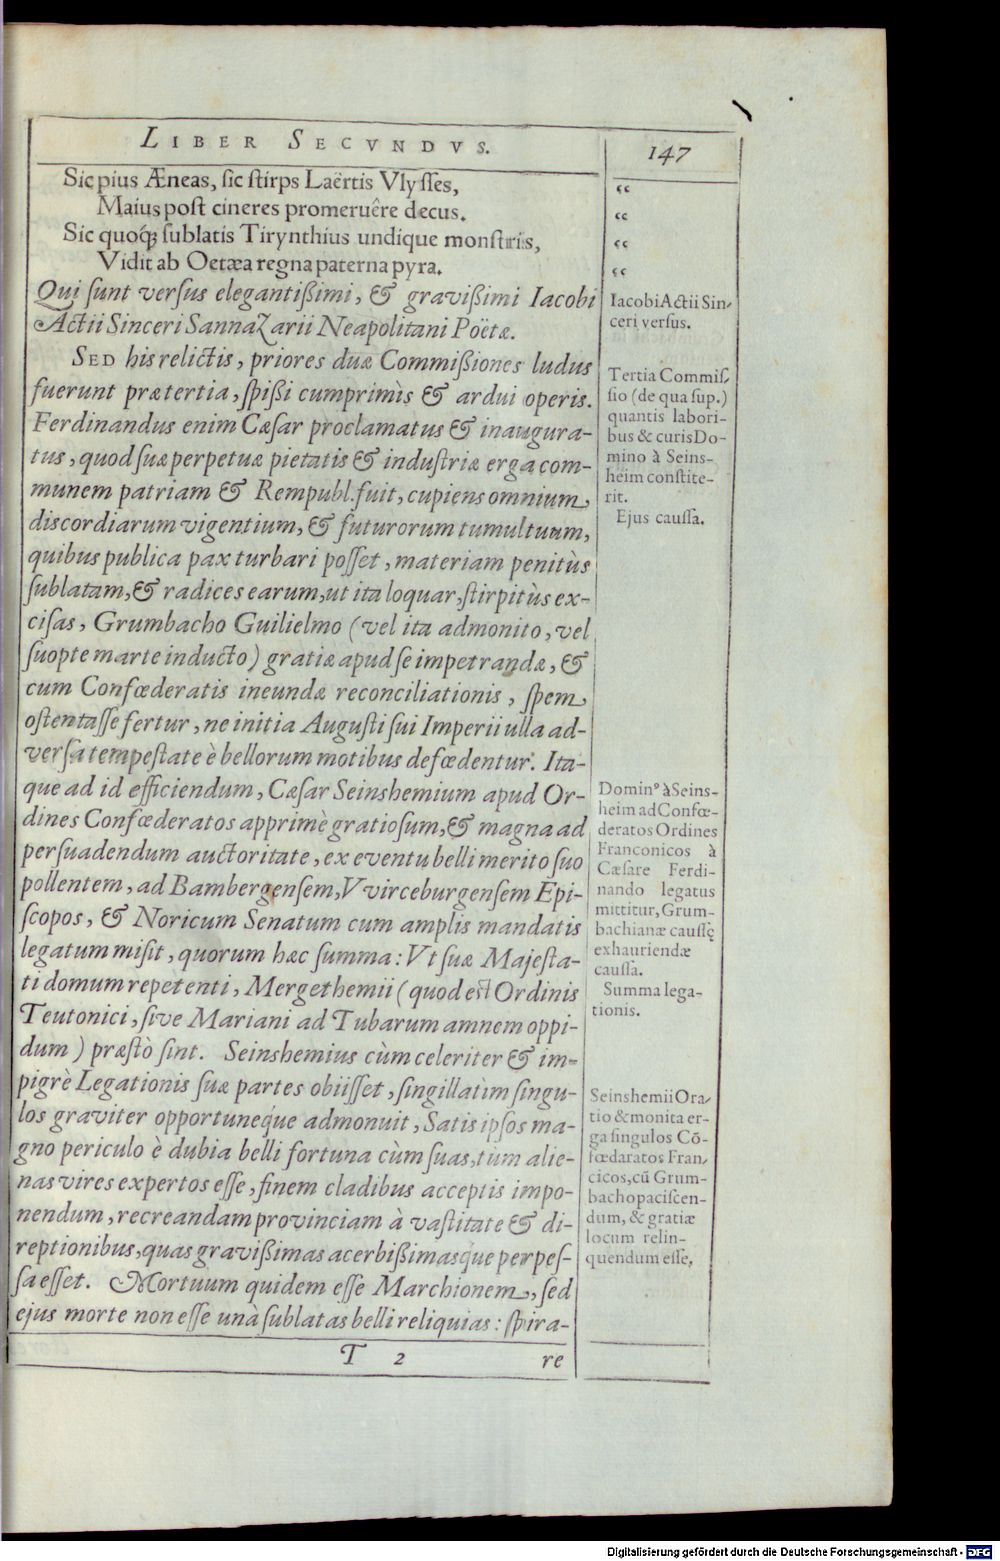 LIBER SECVNDVS.
147
Sic pius Æneas, sic stirps Laërtis Vlysses,
Maius post cineres promeruêre decus.
Sic quoq́; sublatis Tirynthius undique monstris,
Vidit ab Oetæa regna paterna pyra.
Qui sunt versus elegantißimi, & gravißimi Iacobi
Actii Sinceri Sannazarii Neapolitani Poëtæ.
SED his relictis, priores duæ Commißiones ludus
fuerunt præ tertia, spißi cumprimìs & ardui operis.
Ferdinandus enim Cæsar proclamatus & inaugura-
tus, quod suæ perpetuæ pietatis & industriæ erga com-
munem patriam & Rempubl. fuit, cupiens omnium
discordiarum vigentium, & futurorum tumultuum,
quibus publica pax turbari posset, materiam penitùs
sublatam, & radices earum, ut ita loquar, stirpitùs ex-
cisas, Grumbacho Guilielmo (vel ita admonito, vel
suopte marte inducto) gratiæ apud se impetrandæ, &
cum Confœderatis ineundæ reconciliationis, spem
ostentasse fertur, ne initia Augusti sui Imperii ulla ad-
versa tempestate è bellorum motibus defœdentur. Ita-
que ad id efficiendum, Cæsar Seinshemium apud Or-
dines Confœderatos apprimè gratiosum, & magna ad
persuadendum auctoritate, ex eventu belli merito suo
pollentem, ad Bambergensem, Vvirceburgensem Epi-
scopos, & Noricum Senatum cum amplis mandatis
legatum misit, quorum hæc summa: Vt suæ Majesta-
ti domum repetenti, Mergethemii (quod est Ordinis
Teutonici, sive Mariani ad Tubarum amnem oppi-
dum) præstò sint. Seinshemius cùm celeriter & im-
pigrè Legationis suæ partes obiisset, singillatìm singu-
los graviter opportuneq́ue admonuit, Satis ipsos ma-
gno periculo è dubia belli fortuna cùm suas, tùm alie-
nas vires expertos esse, finem cladibus acceptis impo-
nendum, recreandam provinciam à vastitate & di-
reptionibus, quas gravißimas acerbißimasq́ue perpes-
sa esset. Mortuum quidem esse Marchionem, sed
ejus morte non esse unà sublatas belli reliquias: spira-
T 2
re
“
“
“
“
Iacobi Actii Sin-
ceri versus.
Tertia Commis-
sio (de qua sup.)
quantis labori-
bus & curis Do-
mino à Seins-
heim constite-
rit.
Ejus caussa.
Domin⁹ à Seins-
heim ad Confœ-
deratos Ordines
Franconicos à
Cæsare Ferdi-
nando legatus
mittitur, Grum-
bachianæ caussę
exhauriendæ
caussa.
Summa lega-
tionis.
Seinshemii Ora-
tio & monita er-
ga singulos Cō-
fœdaratos Fran-
cicos, cū Grum-
bacho paciscen-
dum, & gratiæ
locum relin-
quendum esse,
Digitalisierung gefördert durch die Deutsche Forschungsgemeinschaft - DFG